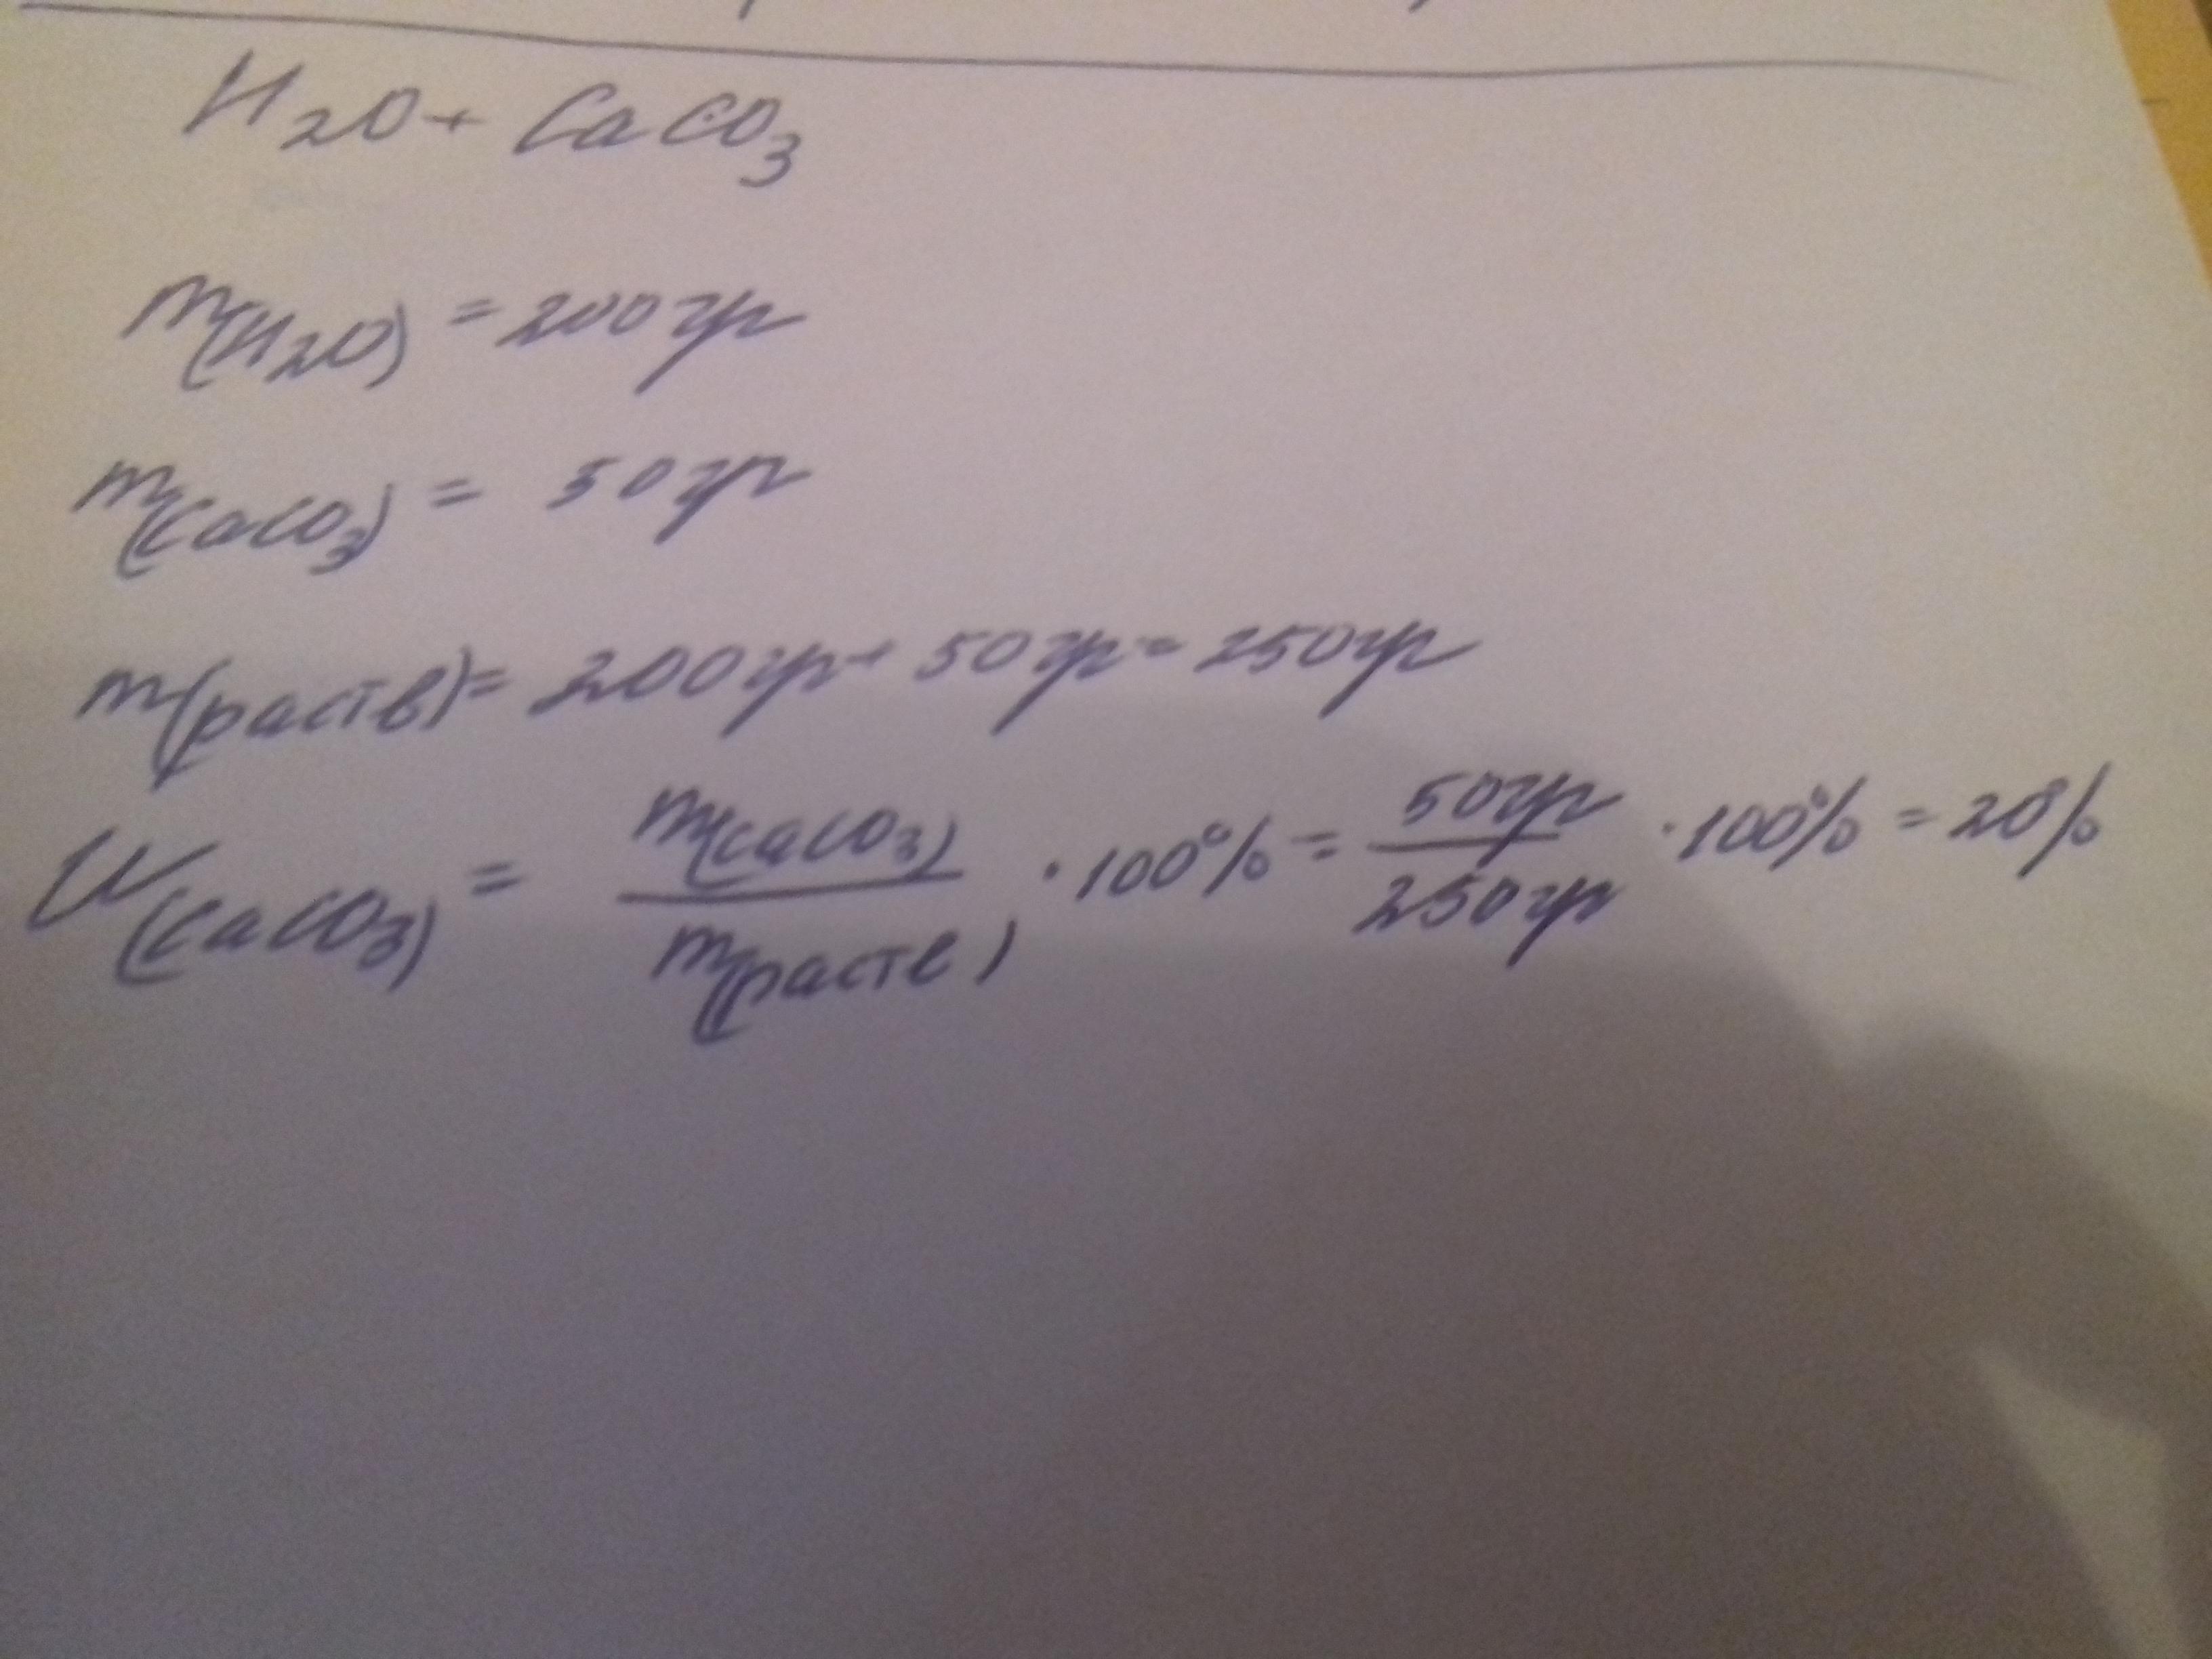 H₂O + CaCO₃
m(H₂O) = 200гр
m(CaCO₃) = 50гр
m(раств) = 200гр + 50гр = 250гр
W(CaCO₃) = m(CaCO₃) / m(раств) · 100% = 50гр / 250гр · 100% = 20%